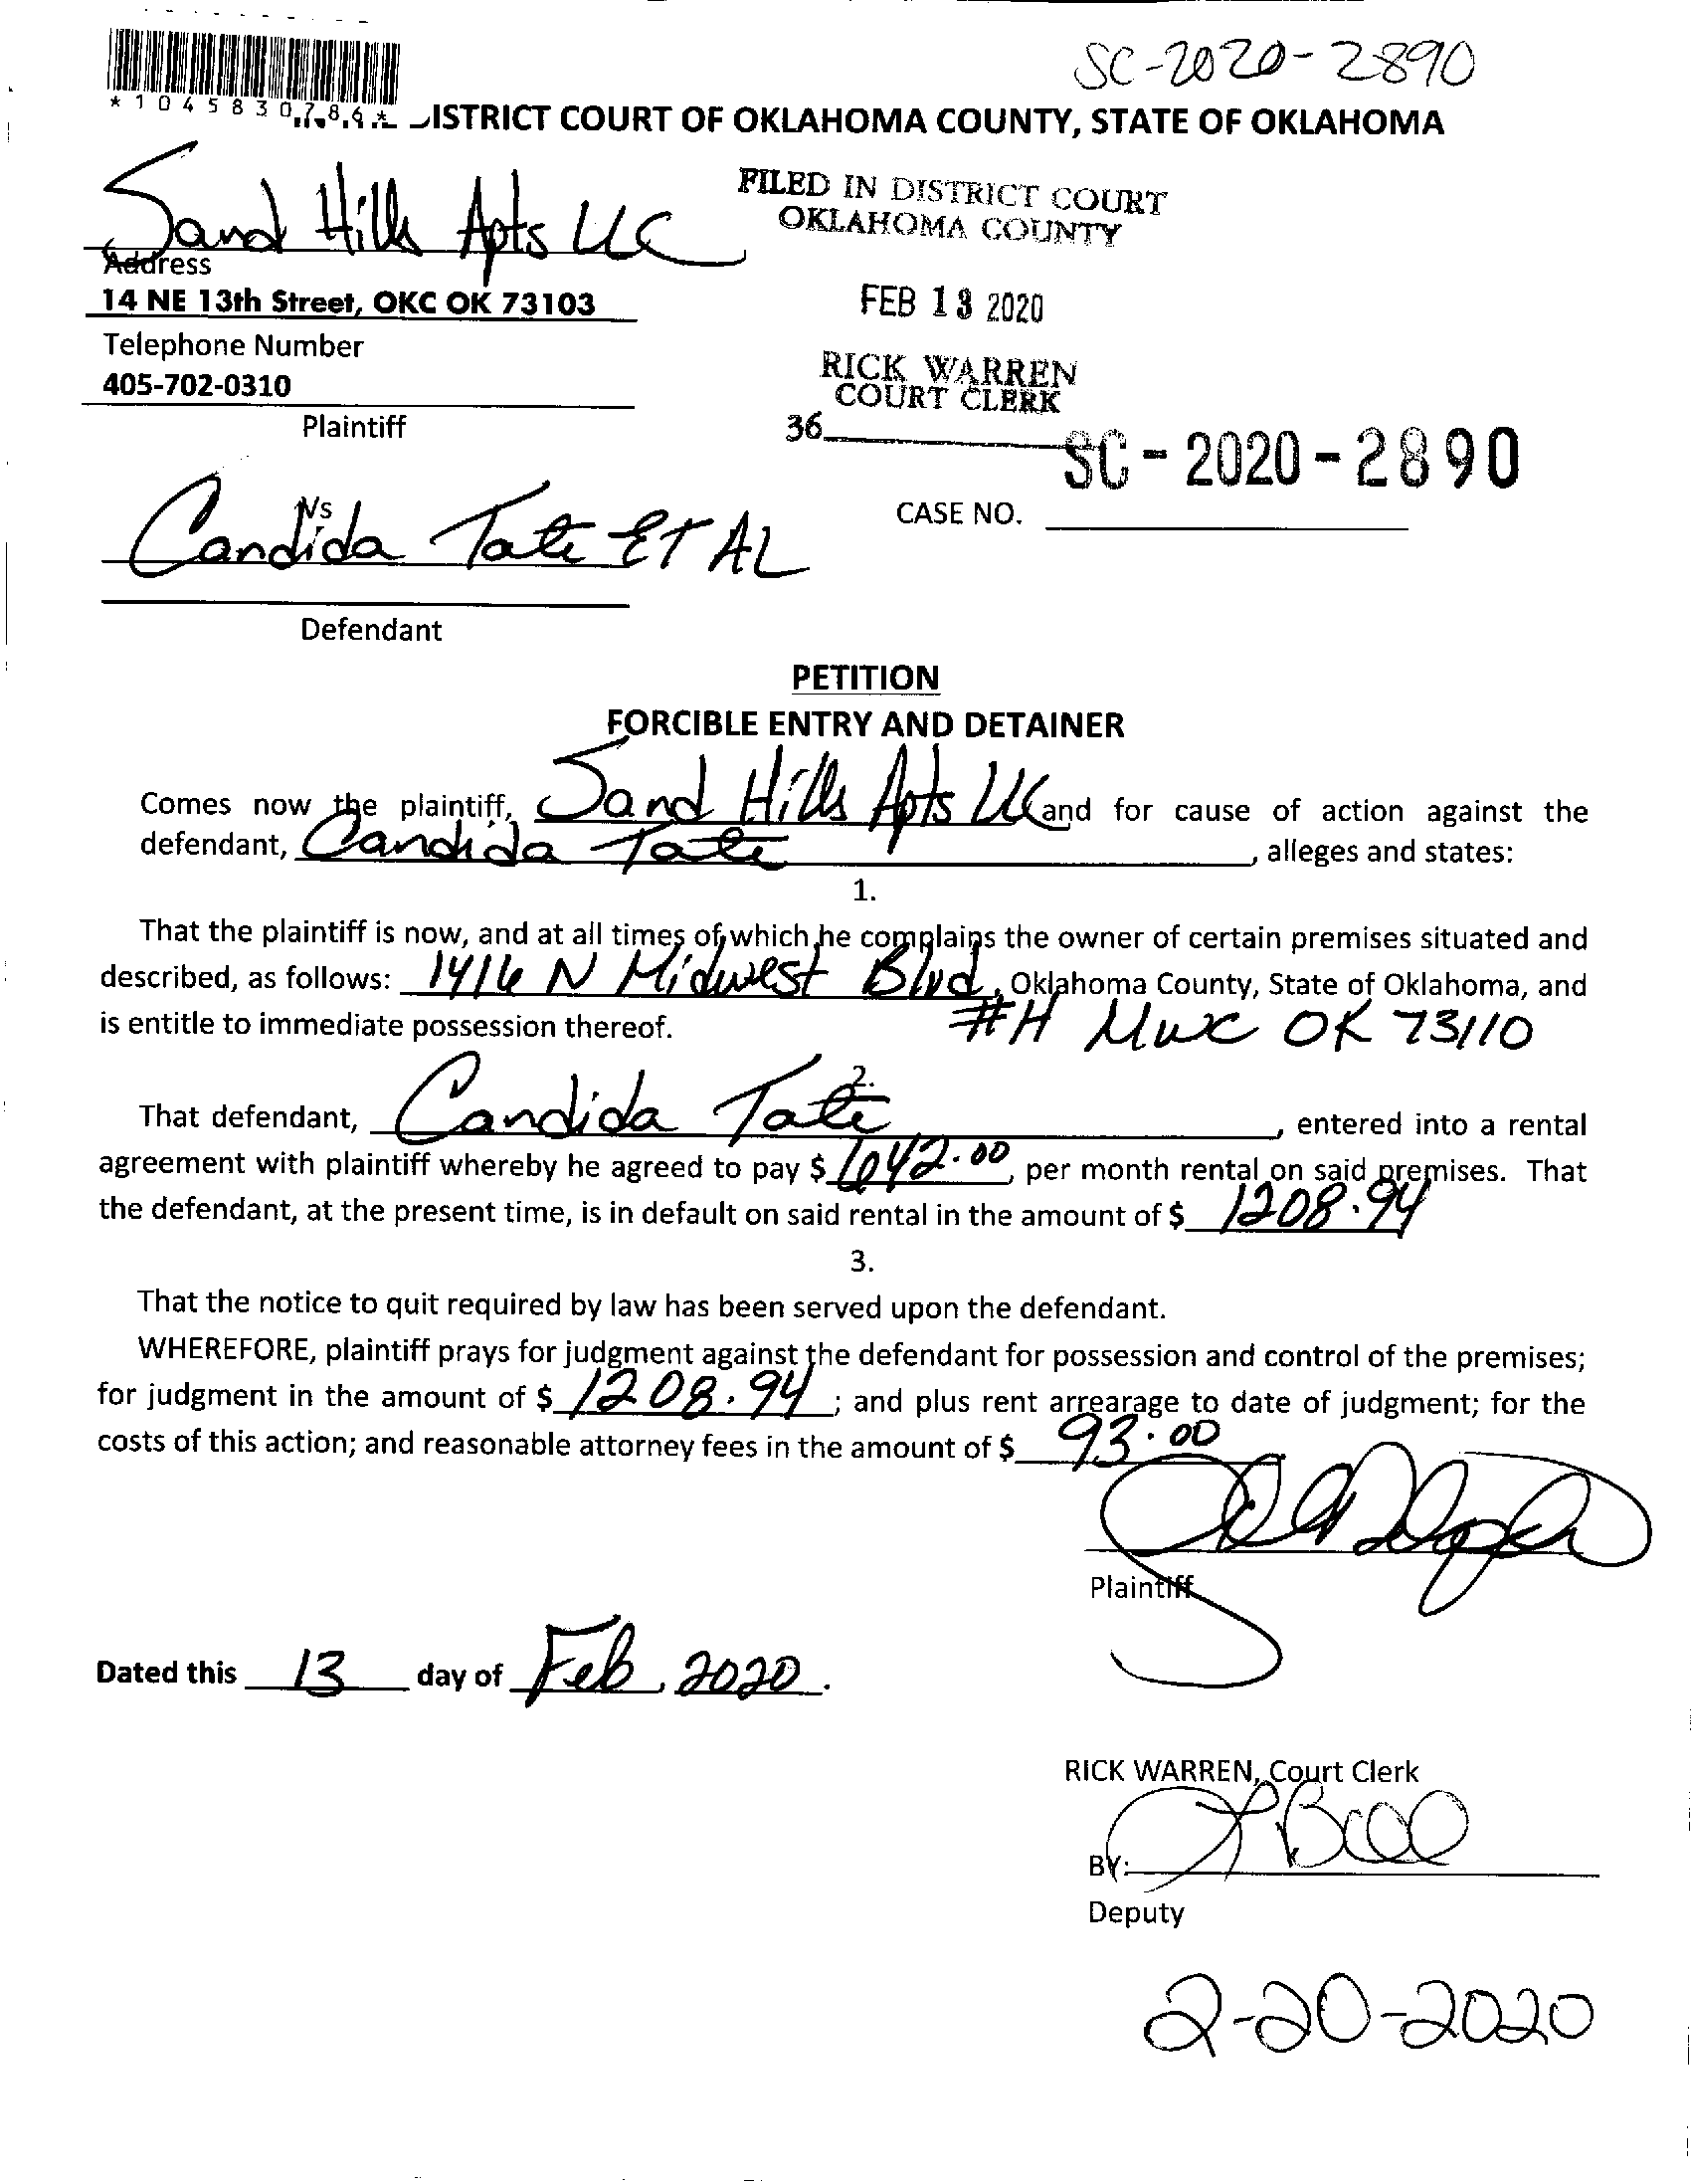 SC-2020-2890
*1045830786*
DISTRICT COURT OF OKLAHOMA COUNTY, STATE OF OKLAHOMA
Sand Hills Apts LLC
FILED IN DISTRICT COURT
OKLAHOMA COUNTY
Address
14 NE 13th Street, OKC OK 73103
FEB 13 2020
Telephone Number
RICK WARREN
COURT CLERK
405-702-0310
Plaintiff
36
SC-2020-2890
Vs
CASE NO.
Candida Tate ET AL
Defendant
PETITION
FORCIBLE ENTRY AND DETAINER
Comes now the plaintiff, Sand Hills Apts LLC and for cause of action against the
defendant, Candida Tate, alleges and states:
1.
That the plaintiff is now, and at all times of which he complains the owner of certain premises situated and
described, as follows: 1416 N Midwest Blvd, Oklahoma County, State of Oklahoma, and
is entitle to immediate possession thereof. #H MWC OK 73110
2.
That defendant, Candida Tate, entered into a rental
agreement with plaintiff whereby he agreed to pay $ 642.00, per month rental on said premises. That
the defendant, at the present time, is in default on said rental in the amount of $ 1208.94
3.
That the notice to quit required by law has been served upon the defendant.
WHEREFORE, plaintiff prays for judgment against the defendant for possession and control of the premises;
for judgment in the amount of $ 1208.94; and plus rent arrearage to date of judgment; for the
costs of this action; and reasonable attorney fees in the amount of $ 93.00
Plaintiff
Dated this 13 day of Feb, 2020.
RICK WARREN, Court Clerk
BY:
Deputy
2-20-2020